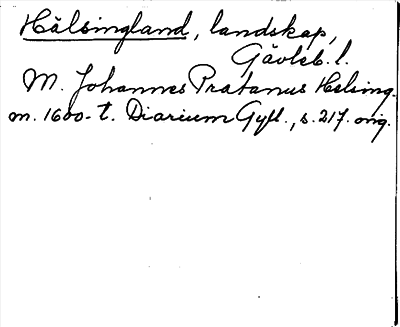 Hälsingland, landskap,
Gävleb. l.
M. Johannes Pratanus Helsing.
m. 1600-t. Diarium Gyll., s. 217. orig.